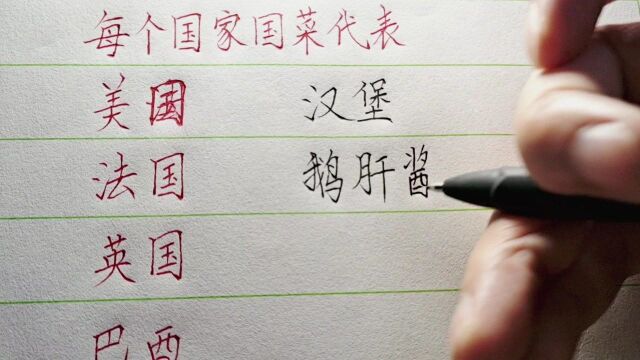 每个国家国菜代表
美国 汉堡
法国 鹅肝酱
英国
巴西